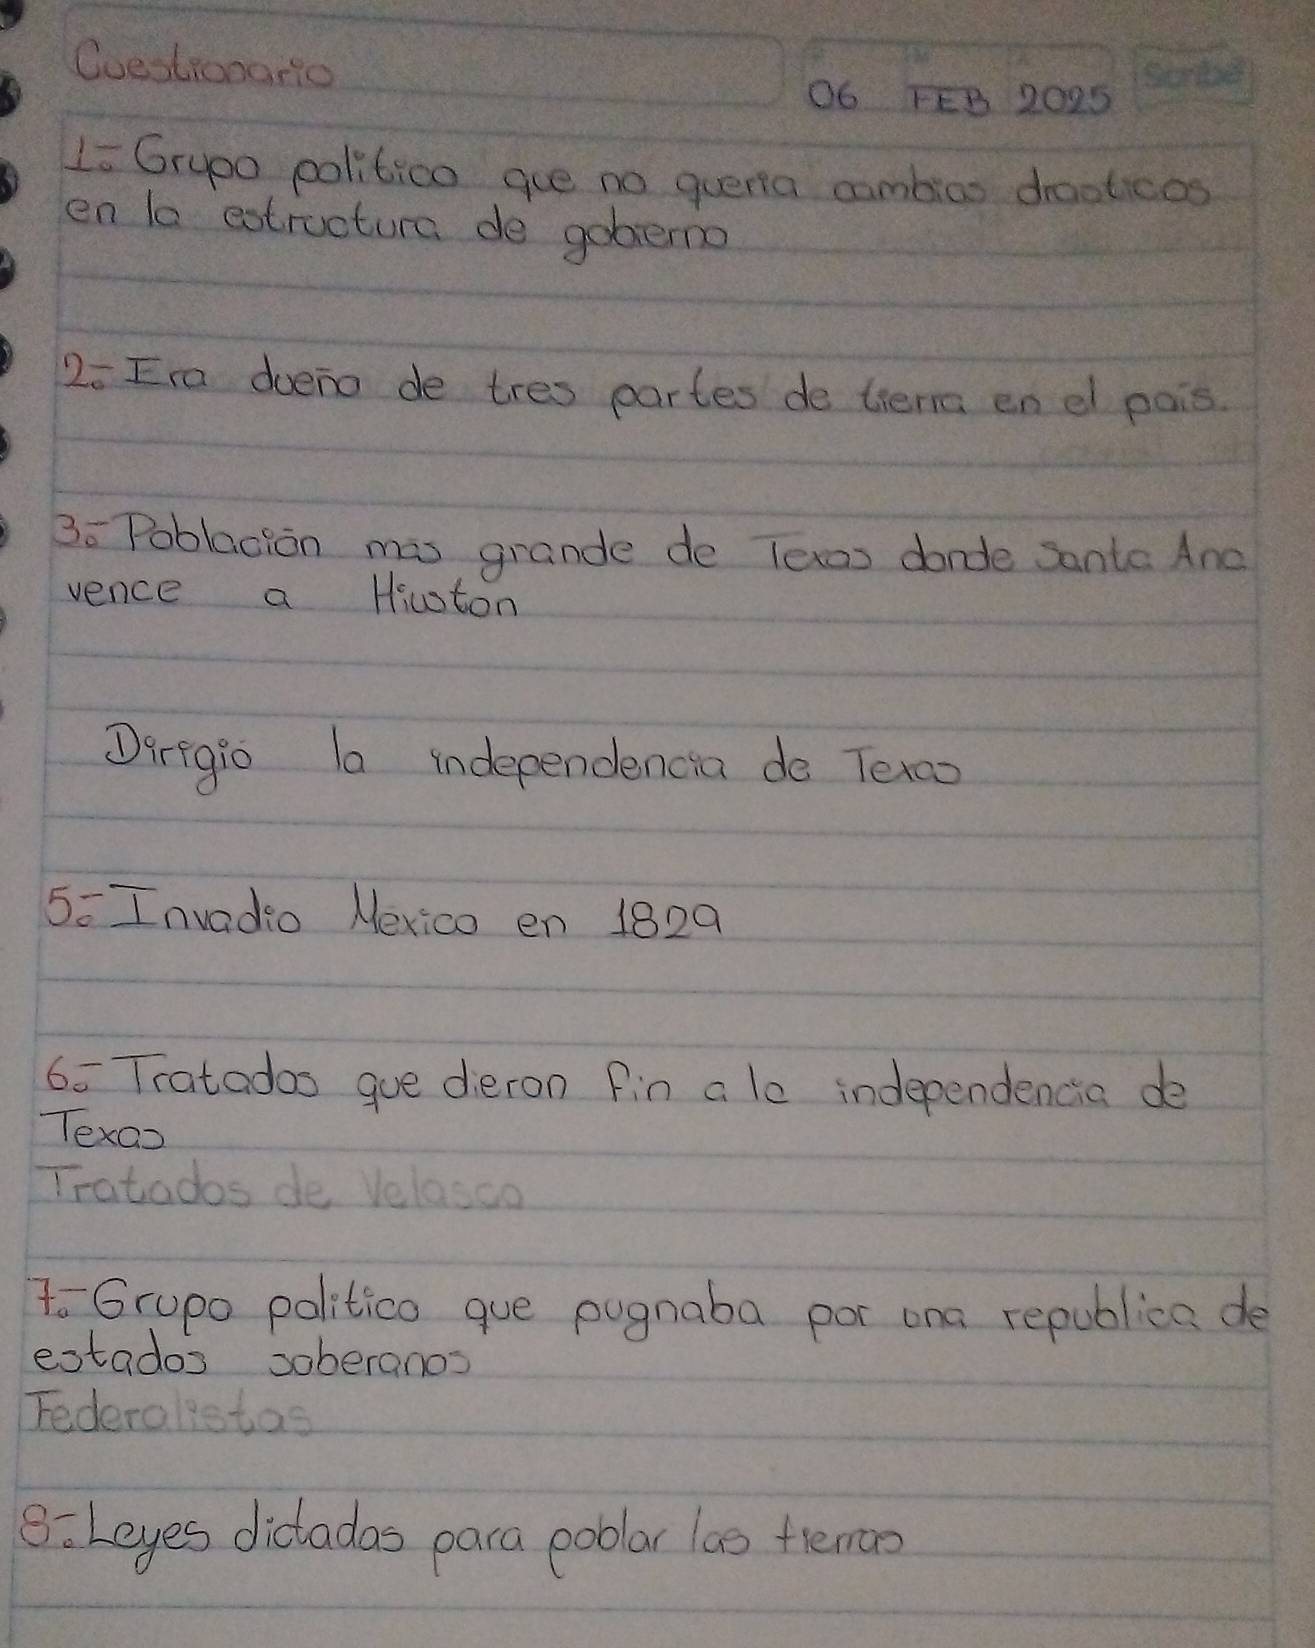 Cuestionario
06 FEB 2025 Scribe
1.- Grupo politico que no queria cambios drasticos
en la estructura de gobierno
2.- Era dueño de tres partes de tierra en el país.
3.- Población más grande de Texas donde Santa Ana
vence a Hiuston
Dirigió la independencia de Texas
5.- Invadio México en 1829
6.- Tratados que dieron fin a la independencia de
Texas
Tratados de Velasco
7.- Grupo politico que pugnaba por una republica de
estados soberanos
Federalistas
8.- Leyes dictadas para poblar las tierras